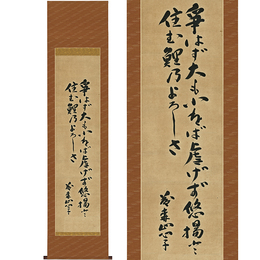 寧はず大も小をば虐げず悠揚と
住む鯉乃よろしさ